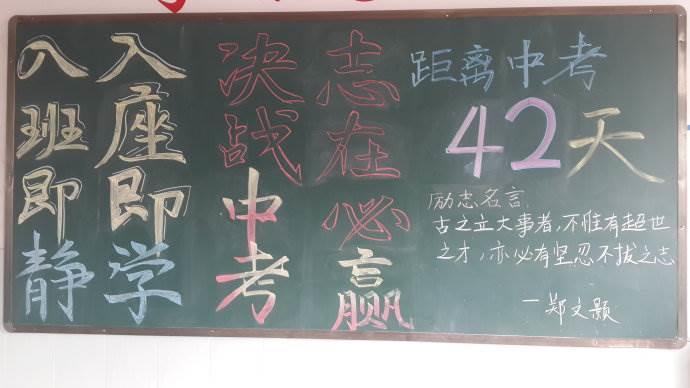 入班即静
入座即学
决战中考
志在必赢
距离中考
42天
励志名言
古之立大事者,不惟有超世
之才,亦必有坚忍不拔之志
—郑文颢